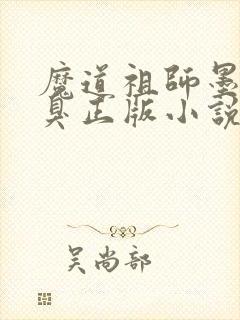 魔道祖師墨
臭正版小說
吴尚部